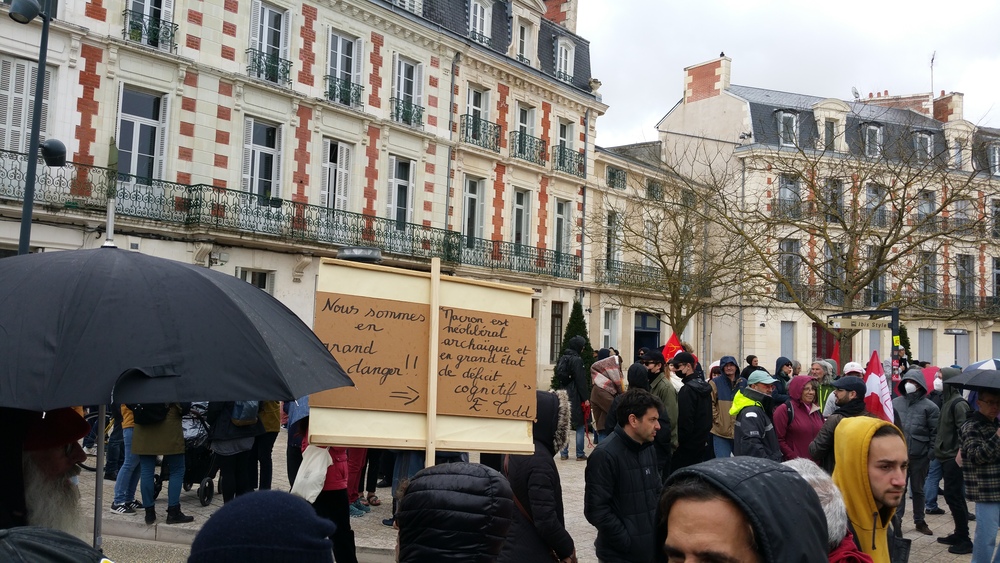 Nous sommes
en
grand
danger !!
=>
Macron est
néolibéral
archaïque et
en grand état
de déficit
cognitif"
E. Todd
ibis Styles